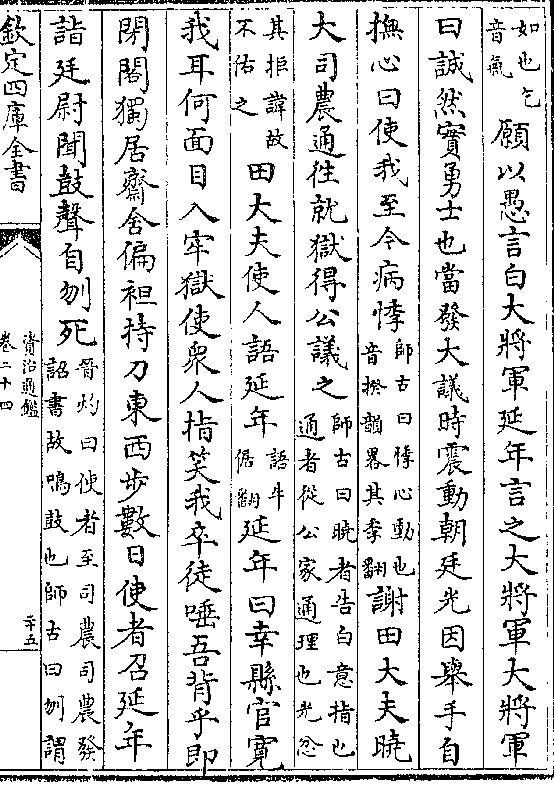 如也乞
音氣
願以愚言白大將軍延年言之大將軍大將軍
曰誠然實勇士也當發大議時震動朝廷光因舉手自
撫心曰使我至今病悸
師古曰悸心動也
音揆韻畧其季翻
謝田大夫曉
大司農通往就獄得公議之
師古曰曉者告白意指也
通者從公家通理也光忿
其拒諱故
不佑之
田大夫使人語延年
語牛
倨翻
延年曰幸縣官寛
我耳何面目入牢獄使衆人指笑我卒徒唾吾背乎即
閉閤獨居齋舍偏袒持刀東西步數日使者召延年
詣廷尉聞鼓聲自刎死
晉灼曰使者至司農司農發
詔書故鳴鼓也師古曰刎謂
欽定四庫全書
資治通鑑
卷二十四
二十五